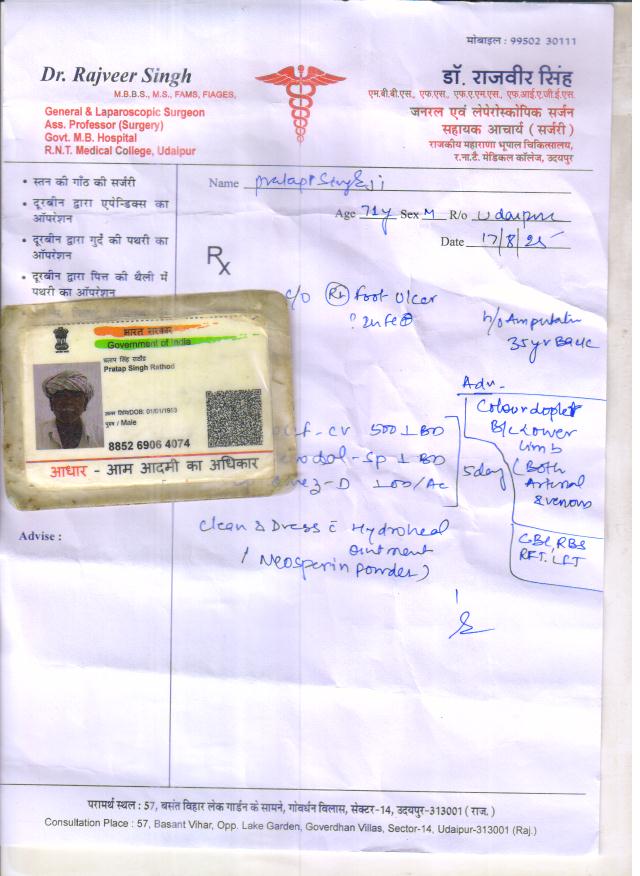 मोबाइल : 99502 30111
Dr. Rajveer Singh
M.B.B.S., M.S., FAMS, FIAGES,
General & Laparoscopic Surgeon
Ass. Professor (Surgery)
Govt. M.B. Hospital
R.N.T. Medical College, Udaipur
डॉ. राजवीर सिंह
एम.बी.बी.एस., एम.एस., एफ.ए.एम.एस., एफ.आई.ए.जी.ई.एस.
जनरल एवं लेपेरोस्कोपिक सर्जन
सहायक आचार्य (सर्जरी)
राजकीय महाराणा भूपाल चिकित्सालय,
र.ना.टै. मेडिकल कॉलेज, उदयपुर
• स्तन की गाँठ की सर्जरी
• दूरबीन द्वारा एपेन्डिक्स का
ऑपरेशन
• दूरबीन द्वारा गुर्दे की पथरी का
ऑपरेशन
• दूरबीन द्वारा पित्त की थैली में
पथरी का ऑपरेशन
Name Pratap Singh ji
Age 71y Sex M R/o Udaipur
Date 17/8/25
Rx
c/o Rt Foot Ulcer
h/o Amputatin
35 yr Back
भारत सरकार
Government of India
प्रताप सिंह राठौड
Pratap Singh Rathod
जन्म तिथि/DOB: 01/01/1953
पुरुष / Male
8852 6906 4074
आधार - आम आदमी का अधिकार
Adv-
Colour doppler
B/L Lower
limb
(Both
Arterial
& venous
CBC, RBS
RFT, LFT
-cv 500 1 BD
-sp 1 BD
-D 1 OD/AC
5 day
Advise :
Clean & Dress c̄ Hydroheal
ointment
/ Neosperin Powder)
परामर्थ स्थल : 57, बसंत विहार लेक गार्डन के सामने, गोवर्धन विलास, सेक्टर-14, उदयपुर-313001 ( राज. )
Consultation Place : 57, Basant Vihar, Opp. Lake Garden, Goverdhan Villas, Sector-14, Udaipur-313001 (Raj.)